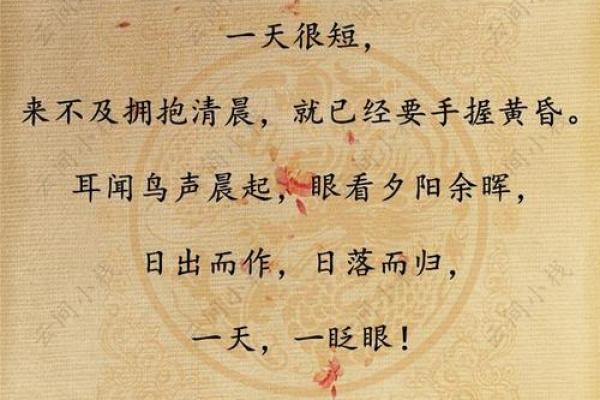 一天很短，
来不及拥抱清晨，就已经要手握黄昏。
耳闻鸟声晨起，眼看夕阳余晖，
日出而作，日落而归，
一天，一眨眼！